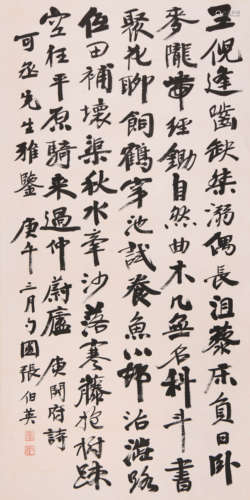 王倪逢齧缺桀溺偶長沮藜床負日卧
麥隴帶經鋤自然曲木几無名科斗書
聚花聊飼鶴穿池試養魚小邨治澁路
低田補壞渠秋水牽沙落寒藤抱樹疎
空枉平原騎來過仲蔚廬 庾開府詩
可丞先生雅鑒 庚午三月勺圃張伯英